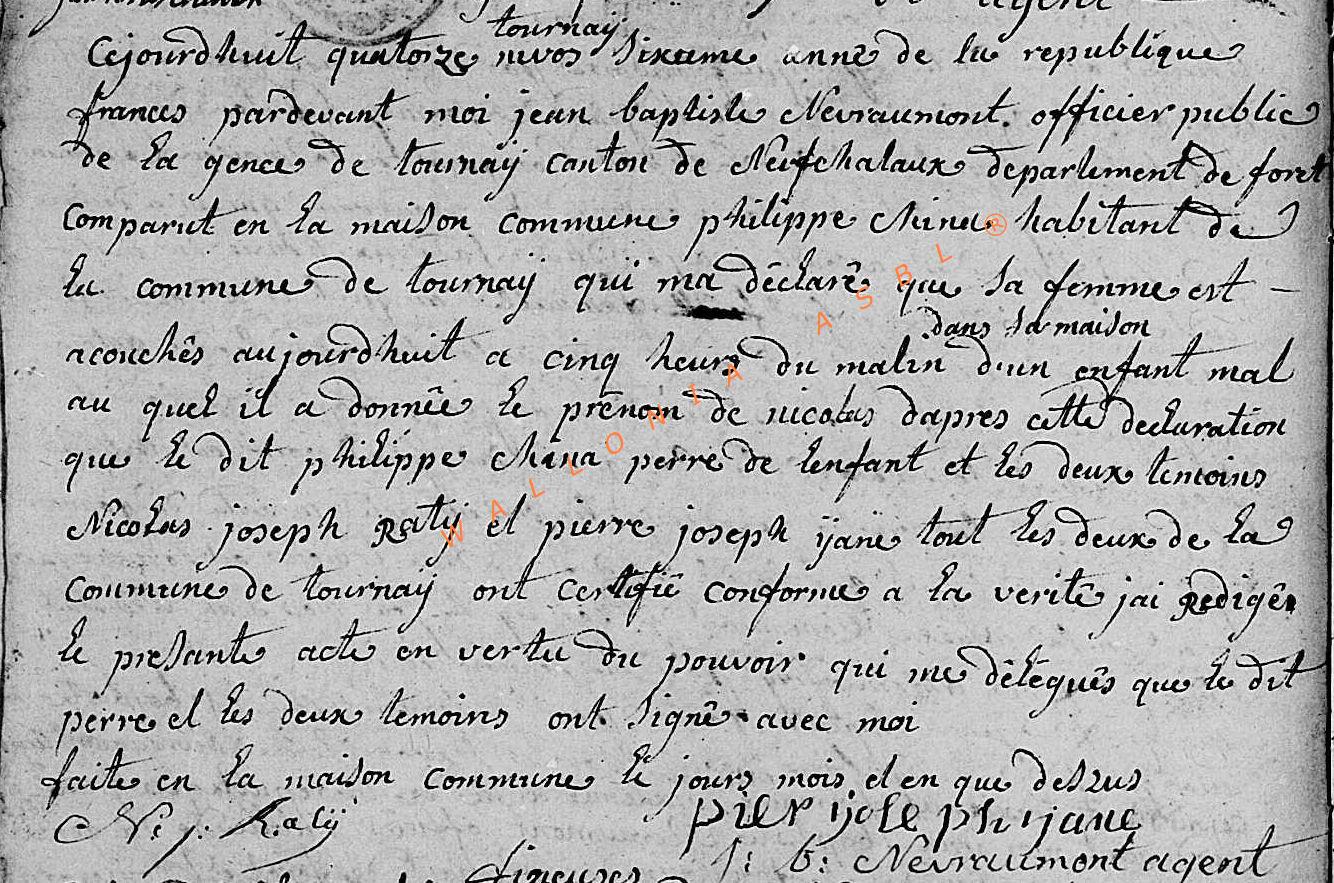 agent
tournay
Cejourdhuit quatorze nivos sixieme anné de la republique
frances pardevant moi jean baptiste Nevraumont officier public
de la gence de tournaÿ canton de Neufchataux departement de foret
comparut en la maison commune philippe China habitant de
la commune de tournaÿ qui ma déclaré que sa femme est -
dans sa maison
acouchés aujourdhuit a cinq heurs du matin d'un enfant mal
au quel il a donnée le prénom de nicolas dapres cette declaration
que le dit philippe China perre de lenfant et les deux temoins
Nicolas joseph Ratÿ et pierre joseph ÿane tout les deux de la
commune de tournaÿ ont certifié conforme a la verité jai Redigér
le presante acte en vertu du pouvoir qui me délégués que le dit
perre et les deux temoins ont signé avec moi
faite en la maison commune le jours mois et en que dessus
N: j: Ratÿ
pier ijosephijane
j: b: Nevraumont agent
WALLONIA ASBL ®